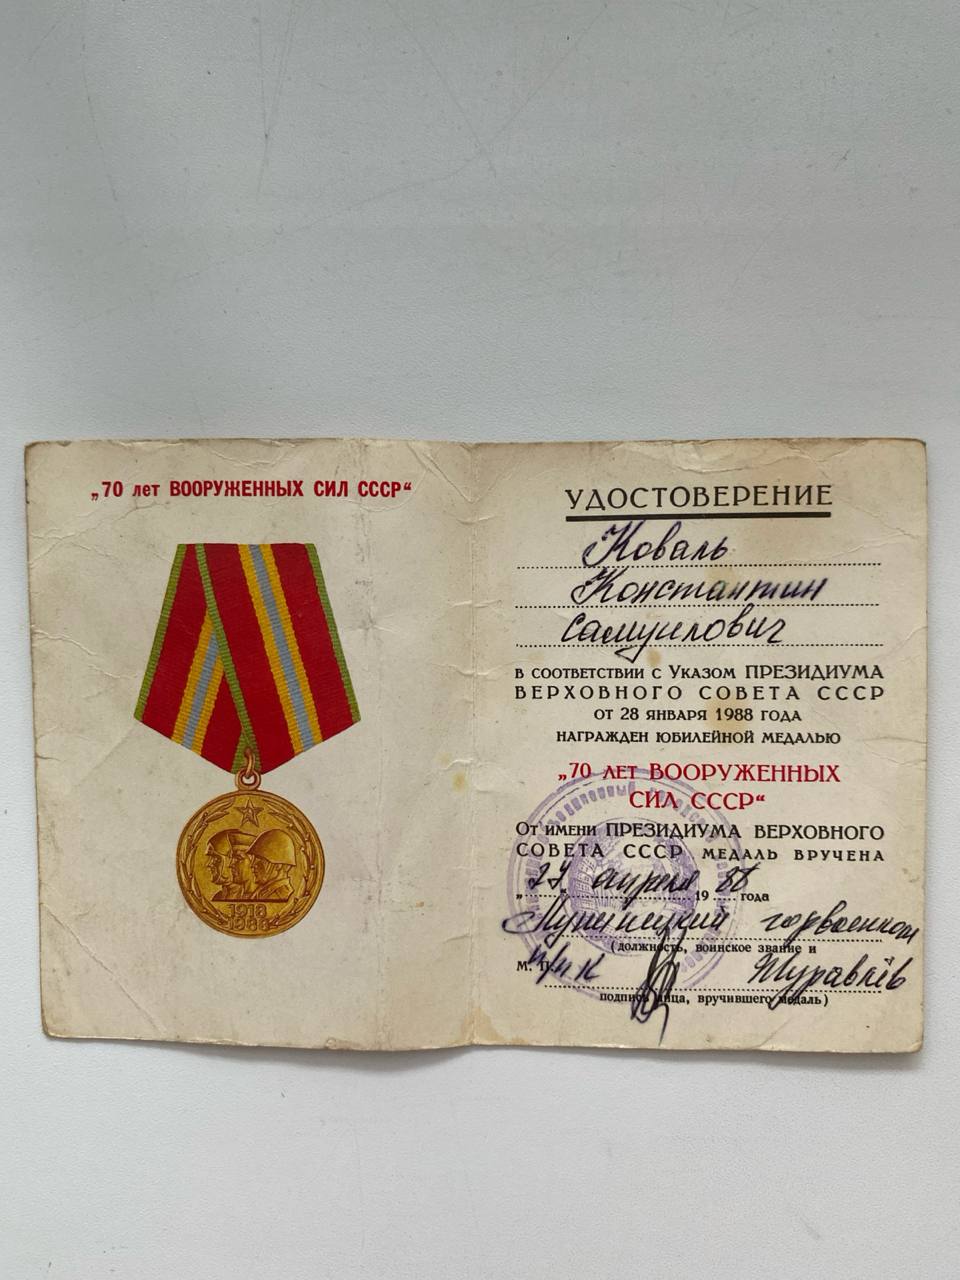 „70 лет ВООРУЖЕННЫХ СИЛ СССР“
1918
1988
УДОСТОВЕРЕНИЕ
Коваль
Константин
Самуилович
в соответствии с Указом ПРЕЗИДИУМА
ВЕРХОВНОГО СОВЕТА СССР
от 28 января 1988 года
награжден юбилейной медалью
„70 лет ВООРУЖЕННЫХ
СИЛ СССР“
От имени ПРЕЗИДИУМА ВЕРХОВНОГО
СОВЕТА СССР медаль вручена
апреля 1988 года
горвоенком
(должность, воинское звание и
М. П. п/п-к Журавлёв
подпись лица, вручившего медаль)